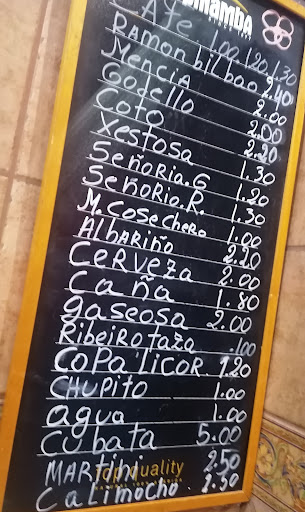 CAFE 1,00 1,20 1,30
RAMON bilbao 2.40
MENCIA 2.00
Godello 2.00
COTO 2.20
XESTOSA 1.30
SEÑORIA.G 1.20
SEÑORIO.R. 1.30
M. COSECHERO 1.00
AlbARIÑO 2.20
CERVEZA 2.00
CAÑA 1.80
gaseosa 2.00
Ribeiro taza .100
COPA LICOR 1.20
CHUPITO 1.00
agua 1.00
Cubata 5.00
MARTINI 2.50
Calimocho 2.50
Top quality